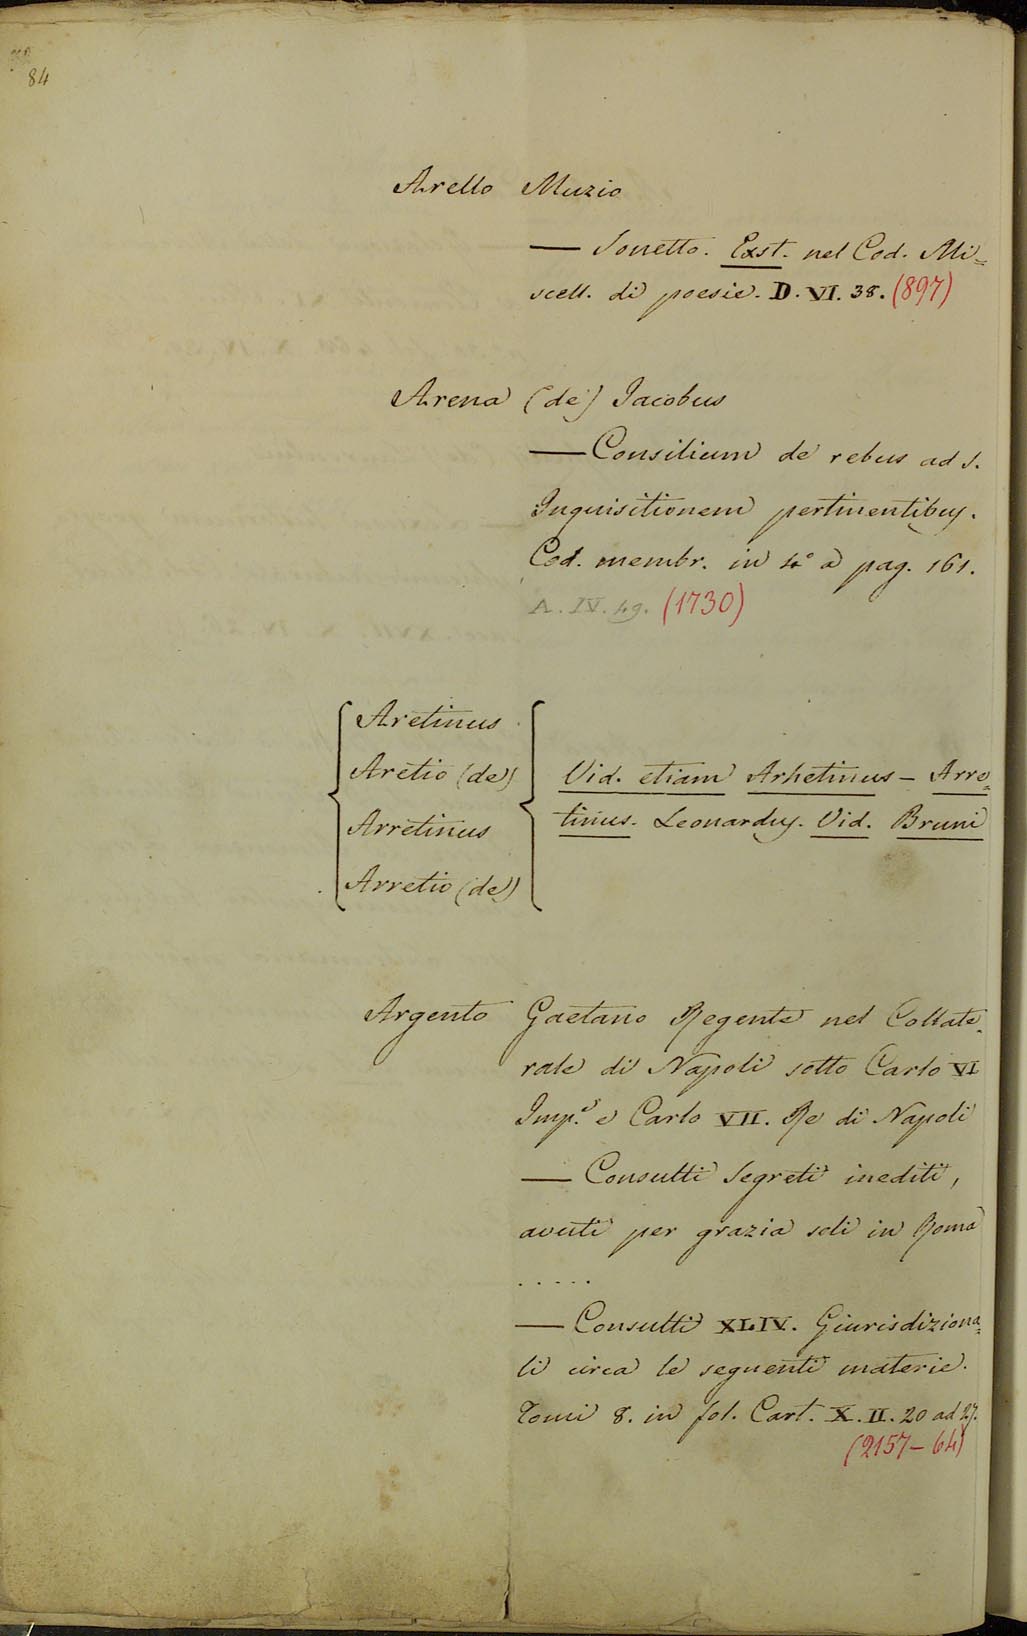 84
Arello Muzio
— Sonetto. Exst. nel Cod. Mi=
scell. di poesie. D. VI. 38. (897)
Arena (de) Jacobus
— Consilium de rebus ad S.
Inquisitionem pertinentibus.
Cod. membr. in 4.° a pag. 161.
A. IV. 49. (1730)
Aretinus
Aretio (de)
Arretinus
Arretio (de)
Vid. etiam Arhetinus – Arre=
tinus. Leonardus. Vid. Bruni
Argento Gaetano Regente nel Collate=
rale di Napoli sotto Carlo VI
Imp.e e Carlo VII. Re di Napoli
— Consulti Segreti inediti,
avuti per grazia soli in Roma
.....
— Consulti XLIV. Giurisdiziona=
li circa le seguenti materie.
Tomi 8. in fol. Cart. X. II. 20 ad 27.
(2157–64)